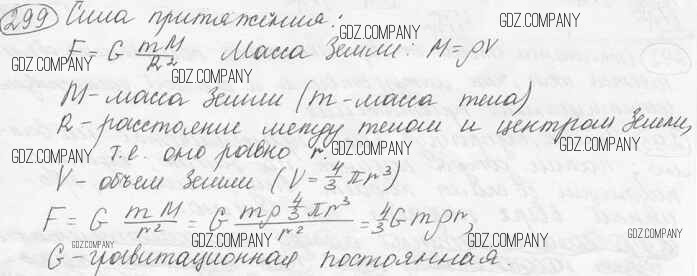 299 Сила притяжения:
F = G mM/R² Масса Земли: M = ρV
M – масса Земли (m – масса тела)
R – расстояние между телом и центром Земли,
т.е. оно равно r.
V – объем Земли (V = 4/3 πr³)
F = G mM/r² = G mρ 4/3 πr³/r² = 4/3 G mρr,
G – гравитационная постоянная.
GDZ.COMPANY
GDZ.COMPANY
GDZ.COMPANY
GDZ.COMPANY
GDZ.COMPANY
GDZ.COMPANY
GDZ.COMPANY
GDZ.COMPANY
GDZ.COMPANY
GDZ.COMPANY
GDZ.COMPANY
GDZ.COMPANY